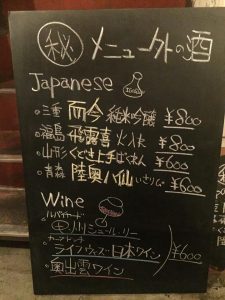 ㊙ メニュー外の酒
Japanese
三重 而今 純米吟醸 ¥800
福島 飛露喜 ¥800
山形 くどき上手 ばくれん ¥600
青森 陸奥八仙 いさり火 ¥600
Wine
ルバイヤード
甲州シュール・リー
ココ・ファーム
日本ワイン
奥出雲ワイン
¥600